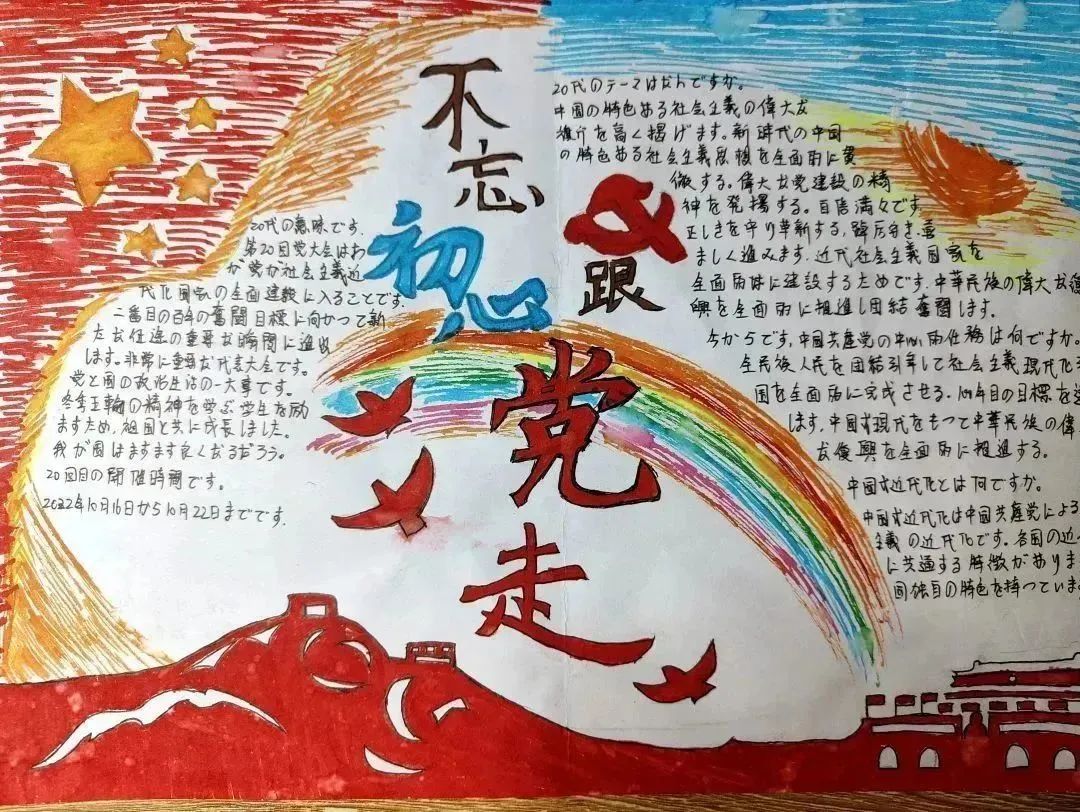 不忘
初心
跟
党
走
20代の意味です.
第20回党大会はわ
が党が社会主義近
代化国家の全面建設に入ることです.
二番目の百年の奮闘目標に向かつて新
たな征途の重要な時間に進め
します。非常に重要な代表大会です。
党と国の政治生活の一大事です。
冬季五輪の精神を学ぶ学生を励
ますため,祖国と共に成長しました。
我が国はますます良くなるだろう。
20回目の開催時間です。
2022年10月16日から10月22日までです.
20代のテーマはなんですか。
中国の特色ある社会主義の偉大な
旗介を高く揚げます。新時代の中国
の特色ある社会主義思想を全面的に貫
徹する。偉大な党建設の精
神を発揚する。自信満々です
正しきを守り革新する,踔厉奋き,勇
ましく進みます.近代社会主義国家を
全面的に建設するためです.中華民族の偉大な復
興を全面的に推進し団結奮闘します。
今からです,中国共産党の中心的任務は何ですか。
全民族人民を団結引率して社会主義現代化
国を全面的に完成させる.100年目の目標を
します,中国式現代をもつて中華民族の偉
な復興を全面的に推進する。
中国式近代化とは何ですか.
中国式近代化は中国共産党による
主義の近代化です.各国の近
に共通する特徴がありま
国独自の特色を持つていま